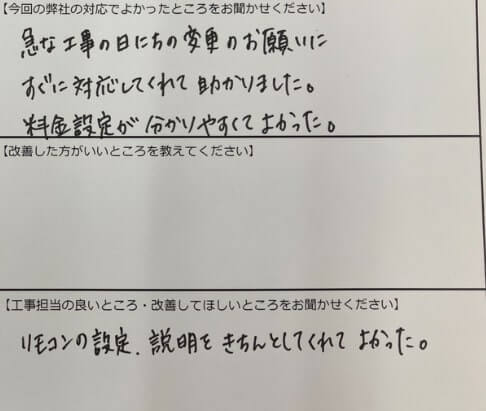 【今回の弊社の対応でよかったところをお聞かせください】
急な工事の日にちの変更のお願いに
すぐに対応してくれて助かりました。
料金設定が分かりやすくてよかった。
【改善した方がいいところを教えてください】
【工事担当の良いところ・改善してほしいところをお聞かせください】
リモコンの設定、説明をきちんとしてくれてよかった。